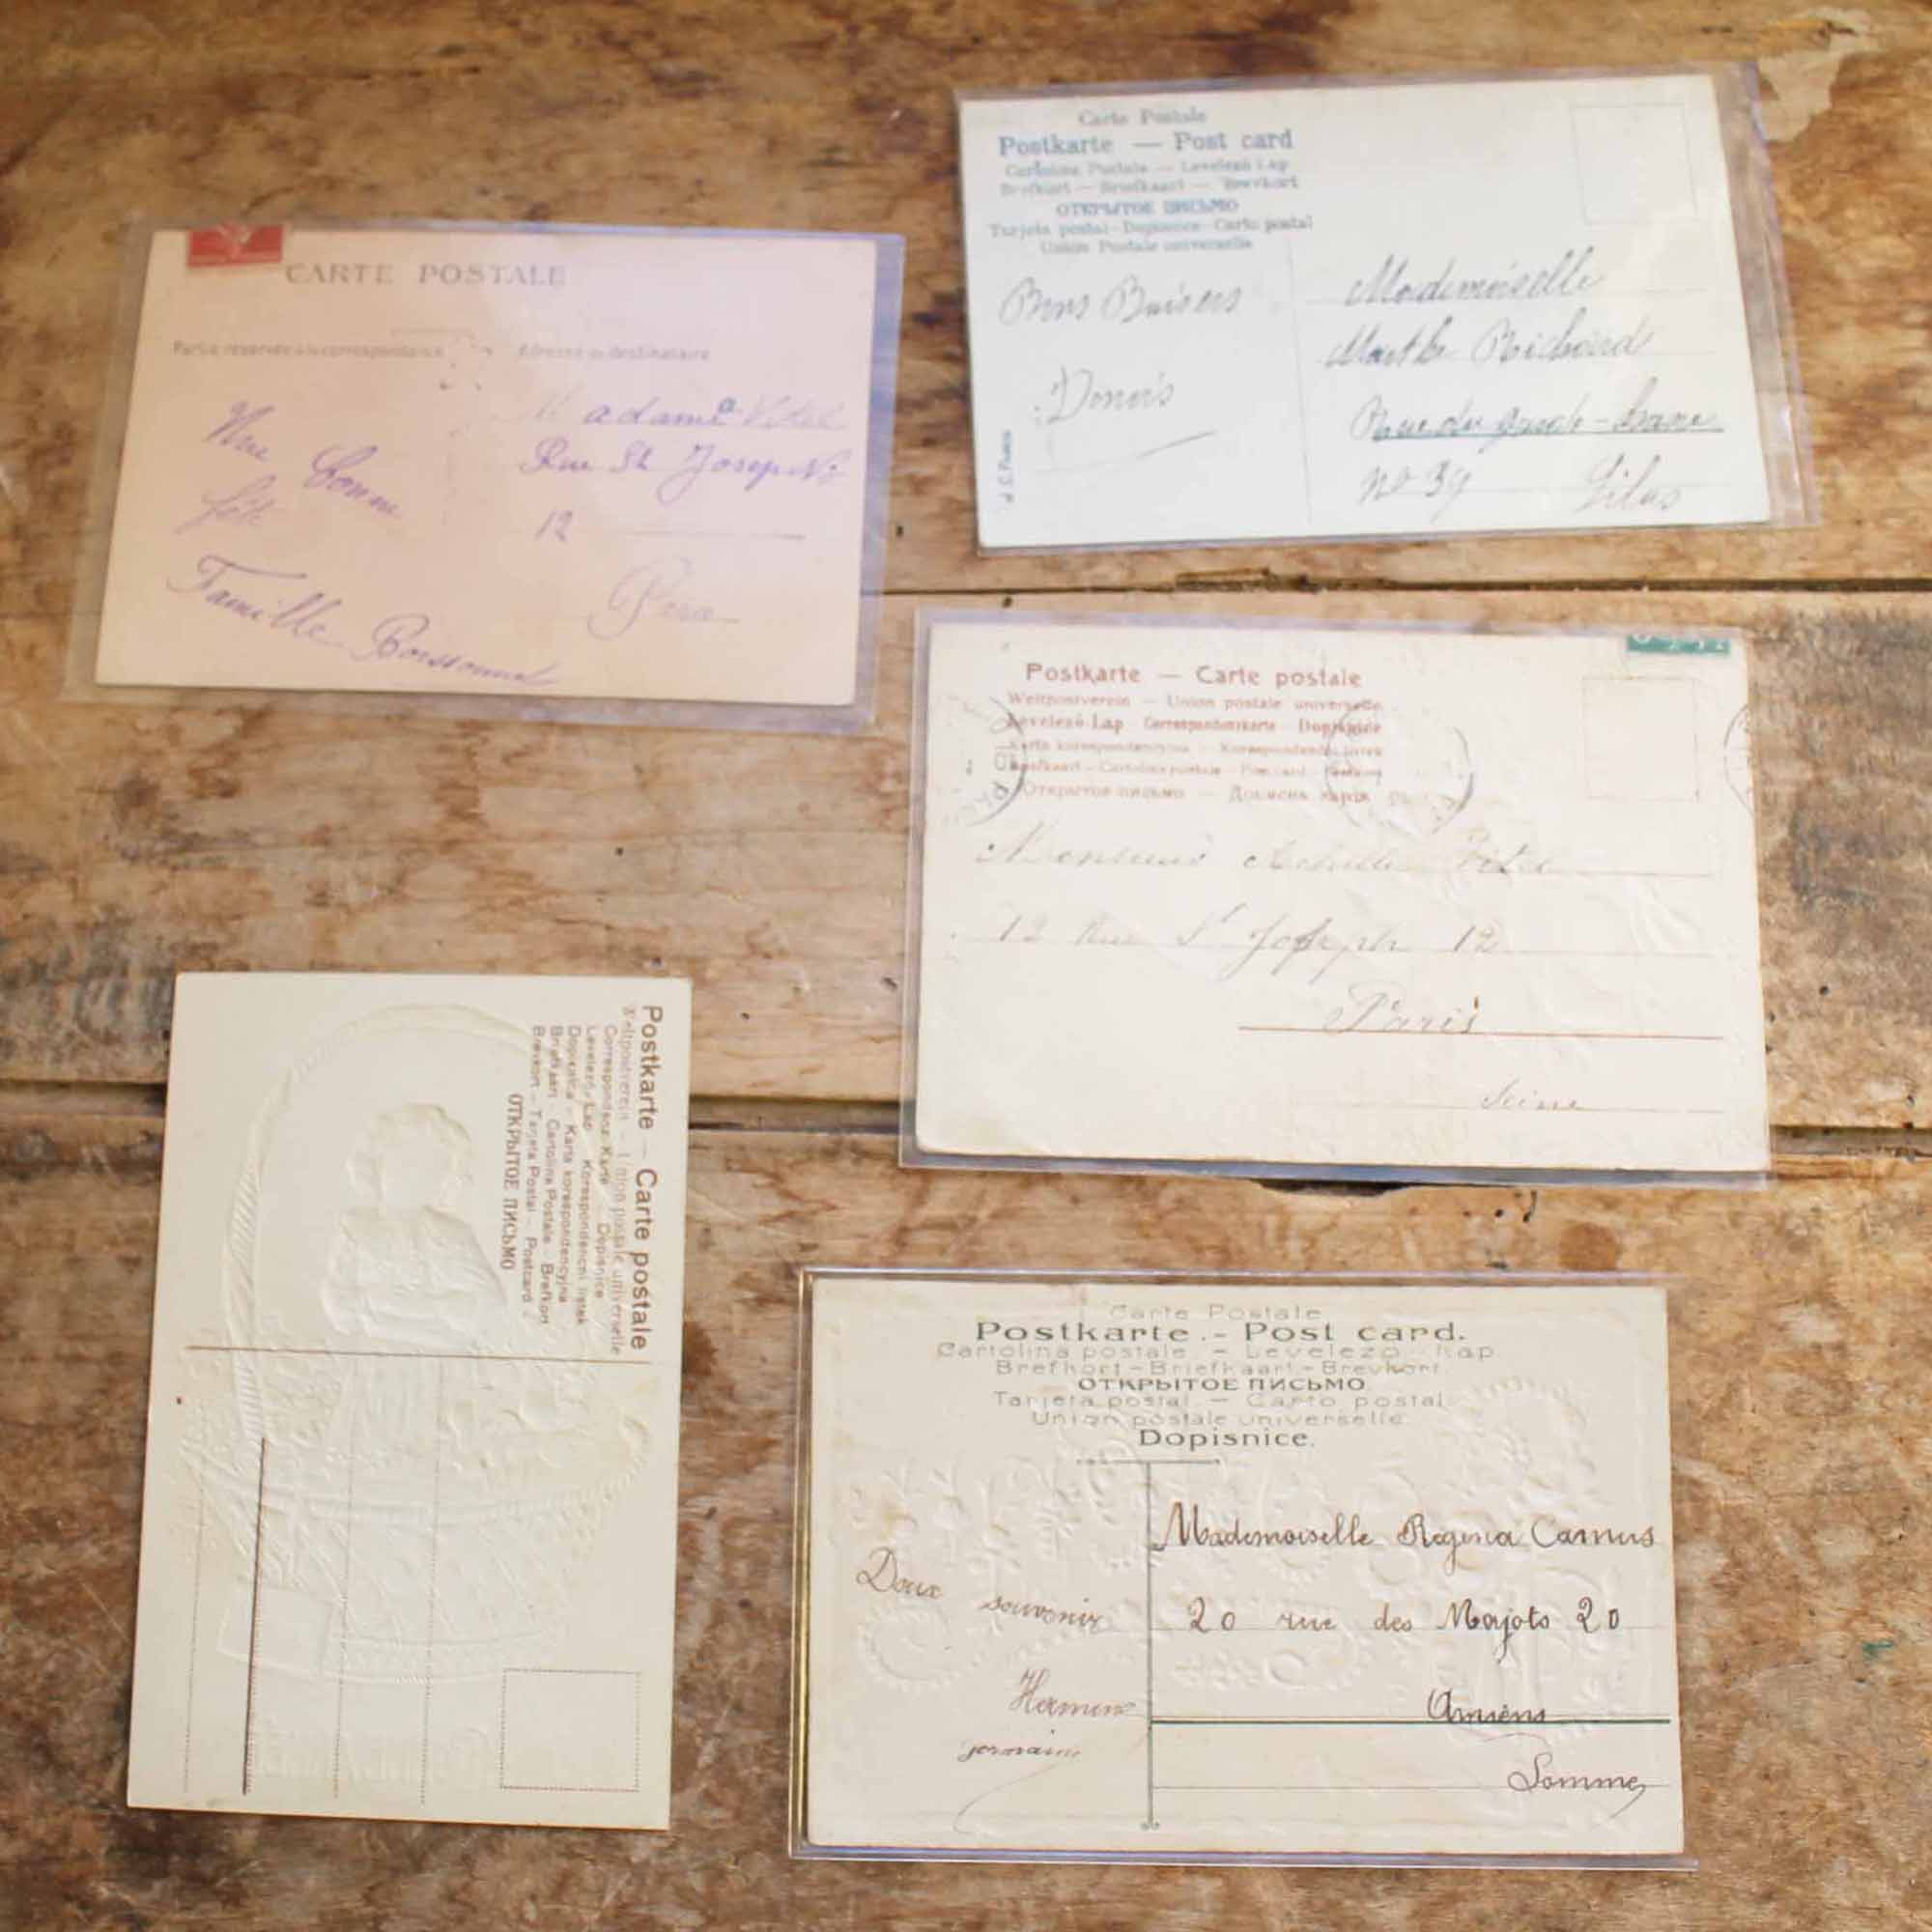 CARTE POSTALE
Partie réservée à la correspondance
Adresse du destinataire
Madame Vitel
Rue St Joseph No
12
Une bonne
fête
Famille
Carte Postale
Postkarte — Post card
Cartolina Postale — Levelező Lap
Brefkort — Briefkaart — Brevkort
ОТКРЫТОЕ ПИСЬМО
Tarjeta postal - Dopisnice - Carto postal
Union Postale universelle
Bons Baisers
Mademoiselle
Marthe Richard
Rue du
No 39 Lilas
Postkarte — Carte postale
Weltpostverein — Union postale universelle
Levelező-Lap Correspondenzkarte Dopisnice
Karta korespondencyjna — Korespondenční lístek
Briefkaart — Cartolina postale — Post card
Открытое письмо — Дописна карта
Monsieur Achille Vitel
12 Rue St Joseph 12
Paris
Seine
Postkarte — Carte postale
Weltpostverein — Union postale universelle
Correspondenz-Karte — Dopisnice
Levelező-Lap — Korespondencní listek
Dopisnica — Karta korespondencyjna
Briefkaart — Cartolina Postale — Brefkort
Brevkort — Tarjeta Postal — Postcard —
ОТКРЫТОЕ ПИСЬМО
Carte Postale
Postkarte. - Post card.
Cartolina postale. — Levelező-Lap
Brefkort - Briefkaart - Brevkort
ОТКРЫТОЕ ПИСЬМО
Tarjeta postal — Carto postal
Union postale universelle
Dopisnice.
Mademoiselle Régina Camus
20 rue des Majots 20
Amiens
Somme
Doux souvenir
Hermine
germaine